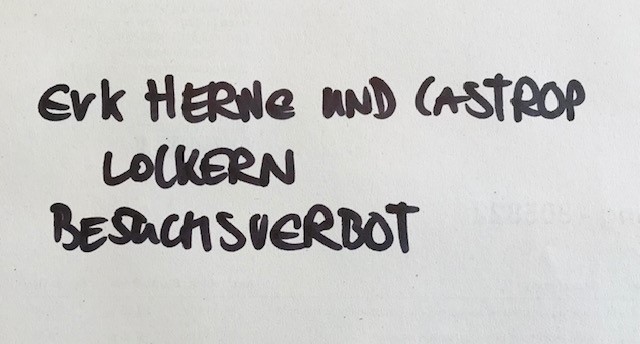 EVK HERNE UND CASTROP
LOCKERN
BESUCHSVERBOT